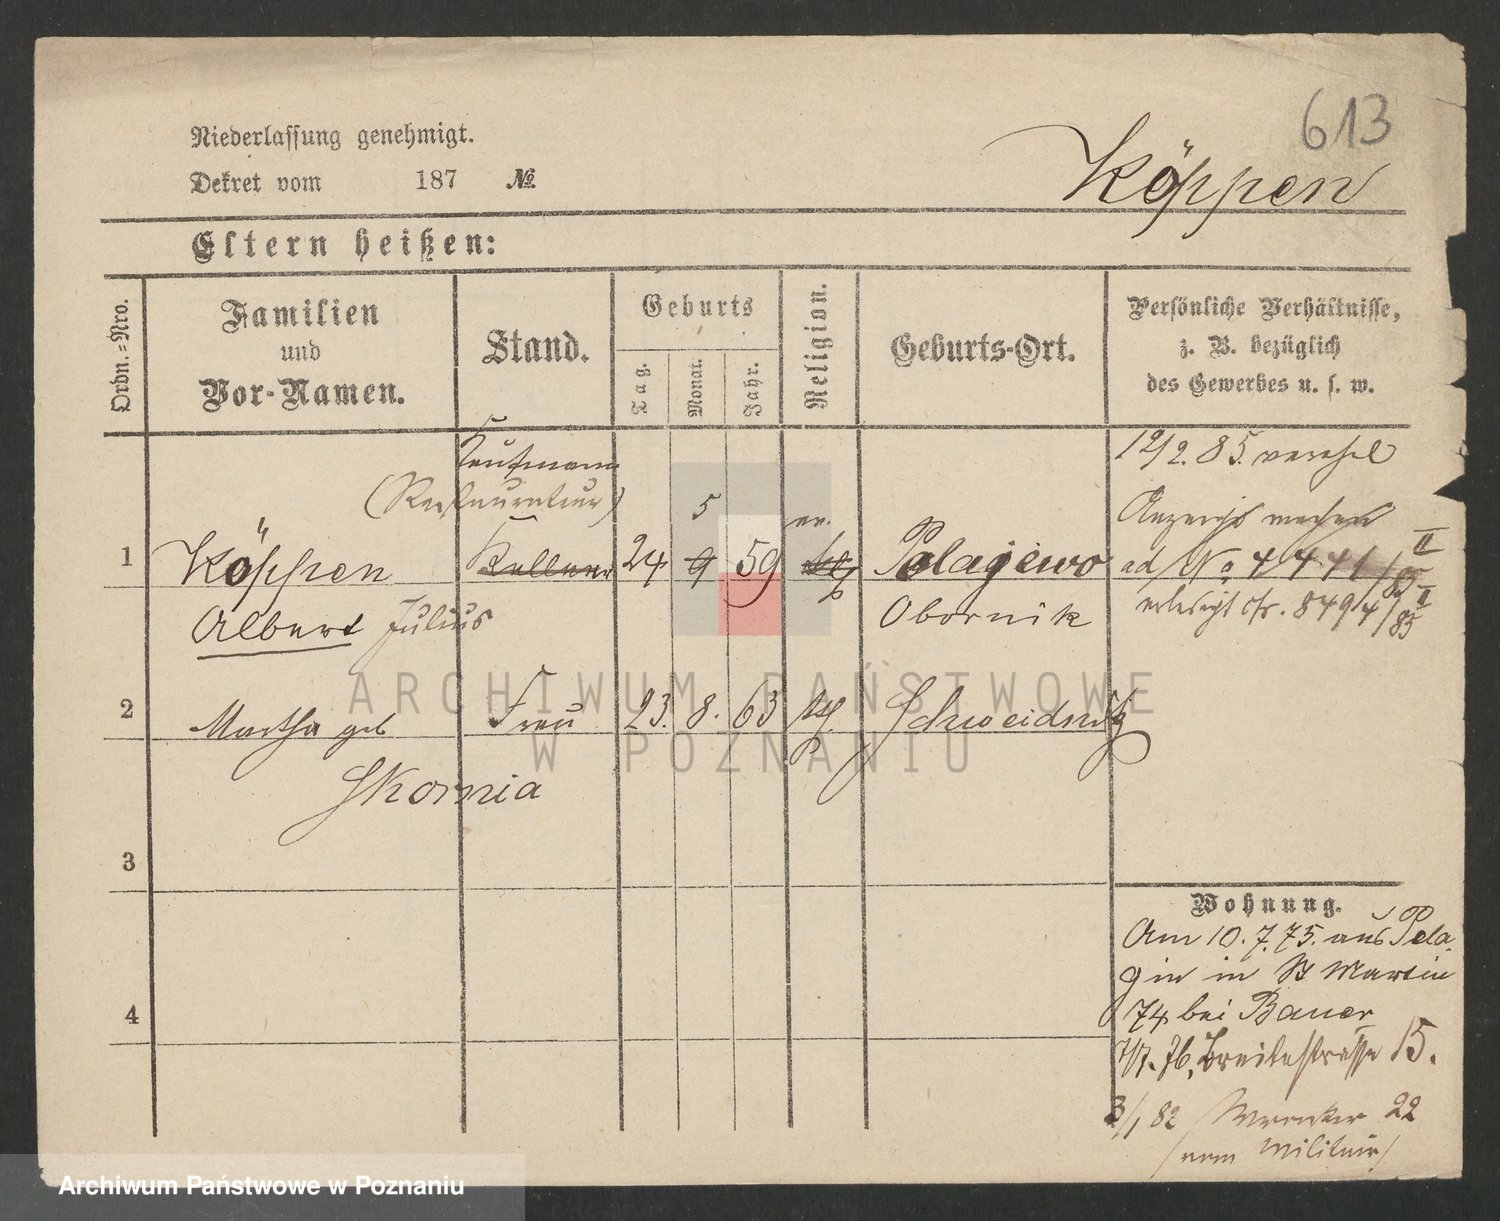 613
Niederlassung genehmigt.
Dekret vom 187 No.
Köppen
Eltern heißen:
Ordn.-Nro.
Familien
und
Vor-Namen.
Stand.
Geburts
Tag.
Monat.
Jahr.
Religion.
Geburts-Ort.
Persönliche Verhältnisse,
z. B. bezüglich
des Gewerbes u. s. w.
Kaufmann
(Restaurateur)
1 Köppen Kellner 24 9 5 59 ev. Polajewo
Albert Julius Obornik
12/2. 85. verehel
Anzeige
ad No 4441/85 II
erledigt cfr. 8494/85 II
2 Martha geb Frau 23. 8. 63 Schweidnitz
Skornia
3
4
Wohnung.
Am 10. 7. 75. aus Pola
in St Martin
74 bei Bauer
7/7. 76. Breitestrasse 15.
3/1 82 Wronker 22
/vom Militair/
ARCHIWUM PAŃSTWOWE
W POZNANIU
Archiwum Państwowe w Poznaniu